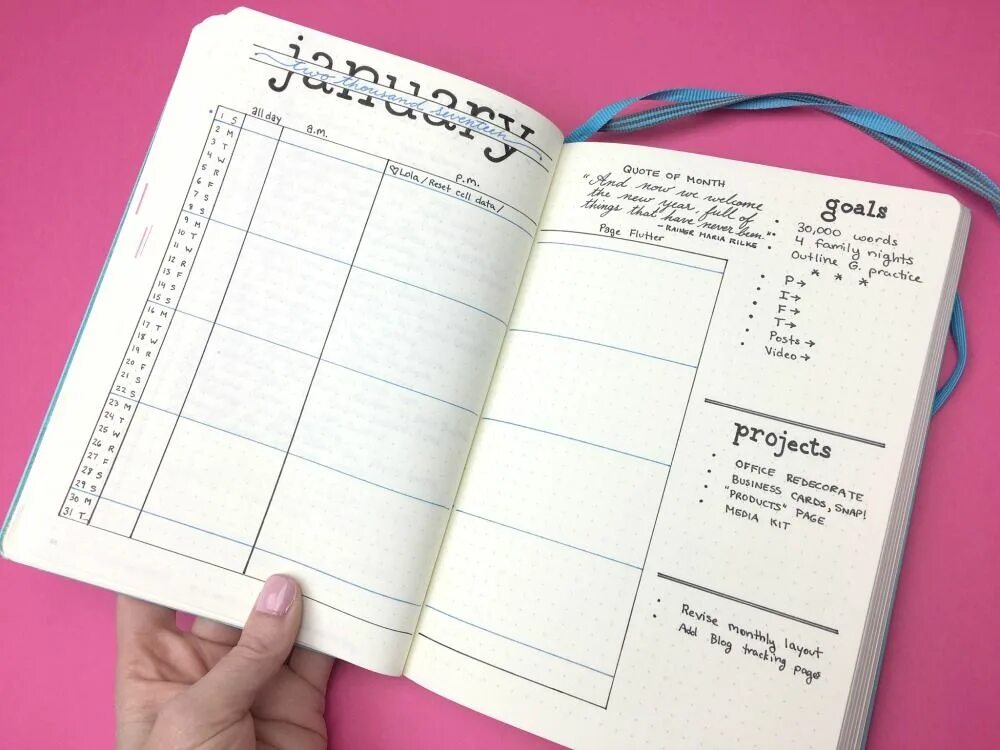 january
two thousand seventeen
all day
a.m.
p.m.
♡Lola / Reset cell data /
1 S
2 M
3 T
4 W
5 R
6 F
7 S
8 S
9 M
10 T
11 W
12 R
13 F
14 S
15 S
16 M
17 T
18 W
19 R
20 F
21 S
22 S
23 M
24 T
25 W
26 R
27 F
28 S
29 S
30 M
31 T
QUOTE OF MONTH
"And now we welcome
the new year, full of
things that have never been."
- RAINER MARIA RILKE
Page Flutter
goals
• 30,000 words
• 4 family nights
• Outline G. practice
* * *
• P→
• I→
• F→
• T→
• Posts →
• Video→
projects
• OFFICE REDECORATE
• BUSINESS CARDS, SNAP!
• "PRODUCTS" PAGE
• MEDIA KIT
• Revise monthly layout
• Add Blog tracking pages